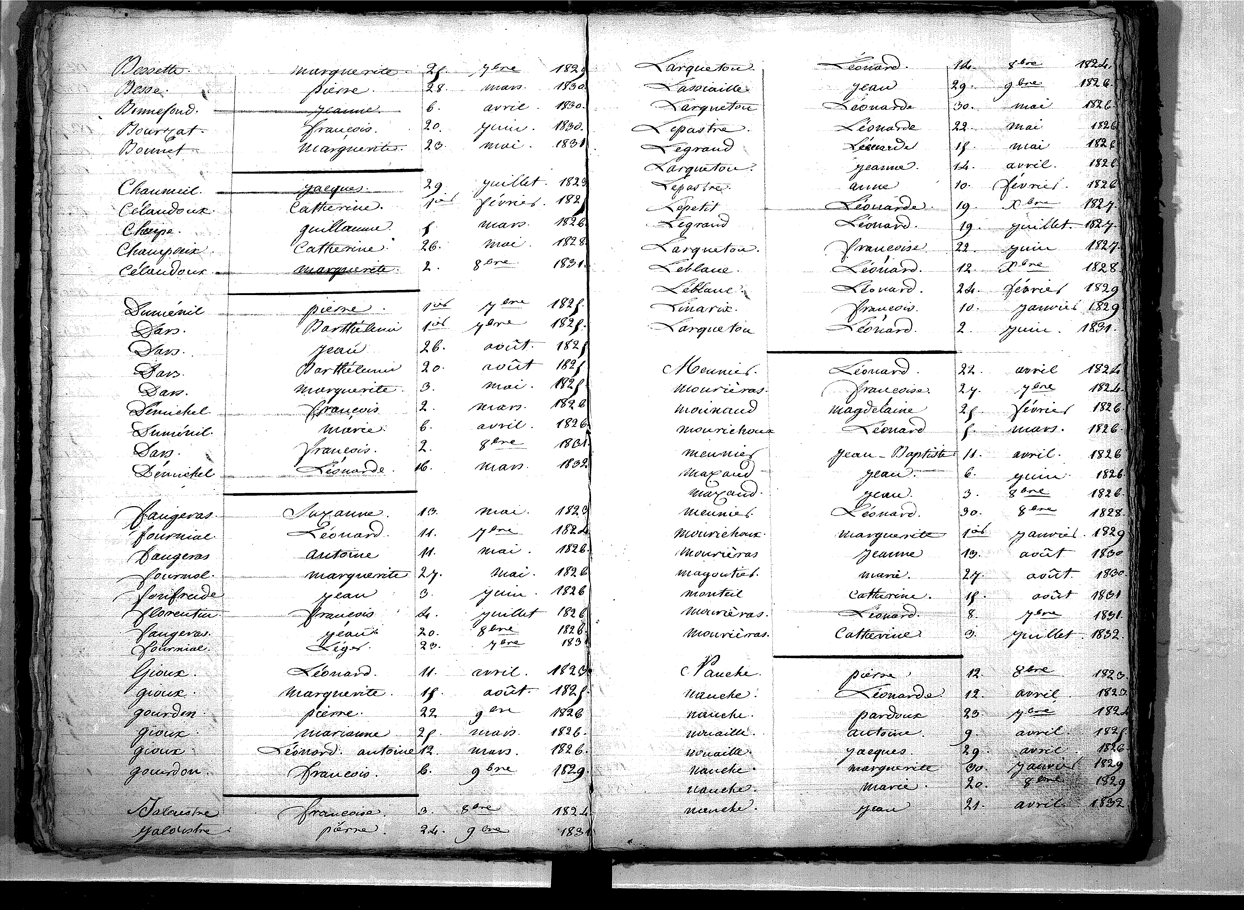 Bessette. marguerite. 25. 7bre 1829
Besse. pierre 28. mars. 1830
Bonnefond. jeanne 6. avril. 1830.
Bourzat. françois. 20. juin. 1830.
Bonnet. marguerite. 23. mai. 1831
Chaumeil jacques. 29. juillet 1823
Célaudoux. Catherine. 1er février. 1825
Chape. guillaume 5 mars. 1826
Champoux Catherine 26. mai 1828
Célaudoux marguerite. 2. 8bre 1831.
Duménil pierre 1er 7bre 1825.
Dars. Barthélemi 1er 7bre 1825.
Dars. jean 26. août. 1825
Dars Barthélemi 20. août 1825
Dars. marguerite. 3. mai. 1825
Démichel françois 2. mars. 1826
Duménil. marie 6. avril. 1826
Dars. françois. 2. 8bre 1831
Démichel Léonarde. 16. mars. 1832
faugeras. Suzanne. 13. mai. 1823
fournial Léonard. 11. 7bre 1824
faugeras antoine 11. mai 1826
fournol. marguerite 27. mai. 1826
fonfreide jean 3. juin. 1826
florentin françois 4. juillet 1826
faugeras. jean 20. 8bre 1826
fourniol. Léger. 23. 7bre 1831
Gioux. Léonard. 11. avril. 1823
gioux. marguerite. 15. août. 1825.
gourdon. pierre. 22. 9bre 1826
gioux. marianne 25. mars. 1826.
gioux Léonard antoine 12. mars. 1826.
gourdon. françois. 6. 9bre 1829.
Jaloustre françoise. 3. 8bre 1824
jaloustre pierre. 24. 9bre 1831
Larqueton. Léonard. 14. 8bre 1824.
Lassiaille jean 29. 9bre 1826.
Larqueton Léonarde 30. mai 1826.
Lepastre. Léonarde 22. mai 1826
Legrand Léonarde 15. mai 1826
Larqueton. jeanne 14. avril. 1826
Lepastre. anne 10. février. 1826
Lepetit Léonarde. 19. Xbre 1827.
Legrand Léonard. 19. juillet. 1827.
Larqueton. françoise 22. juin 1827.
Leblanc. Léonard. 12. Xbre 1828.
Leblanc. Léonard. 24. février 1829
Linarix. françois. 10. janvier 1829
Larqueton Léonard. 2. juin. 1831.
Meunier. Léonard. 22. avril 1824
mouriéras. françoise. 27. 7bre 1824.
mouinaud magdelaine 25. février 1826.
mourichoux Léonard 5. mars. 1826.
meunier jean-Baptiste 11. avril. 1826
mazaud jean. 6. juin 1826.
mazaud. jean. 3. 8bre 1826.
meunier Léonard. 30. 8bre 1828.
mourichoux marguerite. 1er janvier. 1829
mouriéras jeanne 13. août 1830
magoutier. marie. 27. août. 1830.
monteil Catherine. 15. août 1831
mouriéras. Léonard. 8. 7bre 1831.
mouriéras. Catherine 3. juillet. 1832.
Nauche pierre 12. 8bre 1823.
nauche. Léonarde 12. avril. 1823.
nauche. pardoux 23. 7bre 1824
nouaille. antoine. 9. avril. 1825
nouaille. jacques. 29. avril. 1826
nauche. marguerite 30. janvier 1829
nauche. marie. 20. 8bre 1829
nauche. jean 21. avril 1832